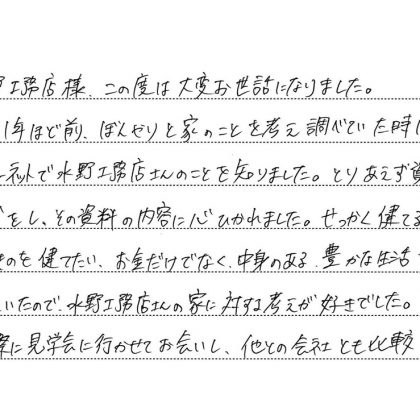 工務店様、この度は大変お世話になりました。
1年ほど前、ぼんやりと家のことを考え調べていた時に
ネットで水野工務店さんのことを知りました。とりあえず資
をし、その資料の内容に心ひかれました。せっかく健てる
ものを健てたい、お金だけでなく、中身のある、豊かな生活
いたので、水野工務店さんの家に対する考えが好きでした。
際に見学会に行かせてお会いし、他との会社とも比較